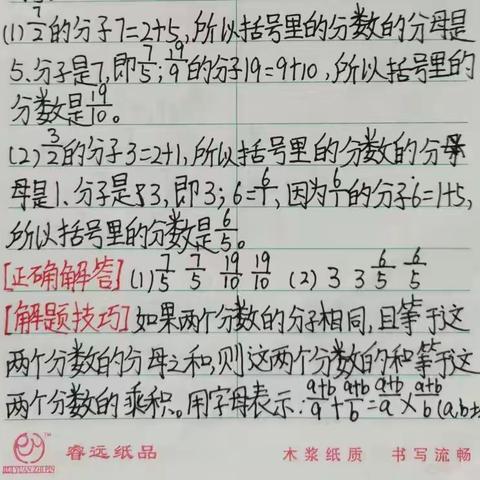 (1) 7/2的分子7=2+5,所以括号里的分数的分母是
5、分子是7,即7/5;19/9的分子19=9+10,所以括号里的
分数是19/10。
(2) 3/2的分子3=2+1,所以括号里的分数的分
母是1、分子是3,即3;6=6/1,因为6/1的分子6=1+5,
所以括号里的分数是6/5。
[正确解答] (1) 7/5 7/5 19/10 19/10 (2) 3 3 6/5 6/5
[解题技巧] 如果两个分数的分子相同,且等于这
两个分数的分母之和,则这两个分数的和等于这
两个分数的乘积。用字母表示:a+b/a+a+b/b=a+b/a×a+b/b(a,b
睿远纸品 木浆纸质 书写流畅
RUI YUAN ZHI PIN